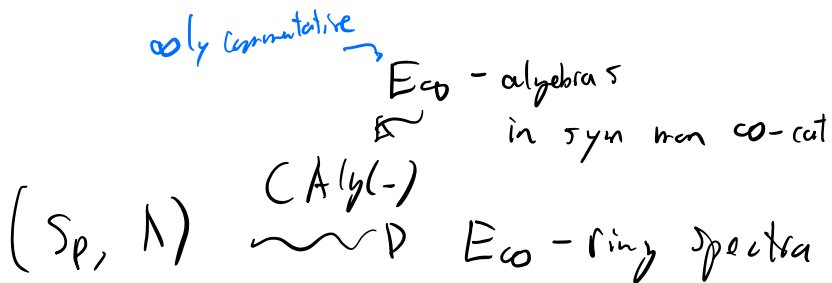 ∞ly commutative
E∞ - algebras
in sym mon ∞-cat
CAlg(-)
(Sp, ∧) E∞ - ring spectra